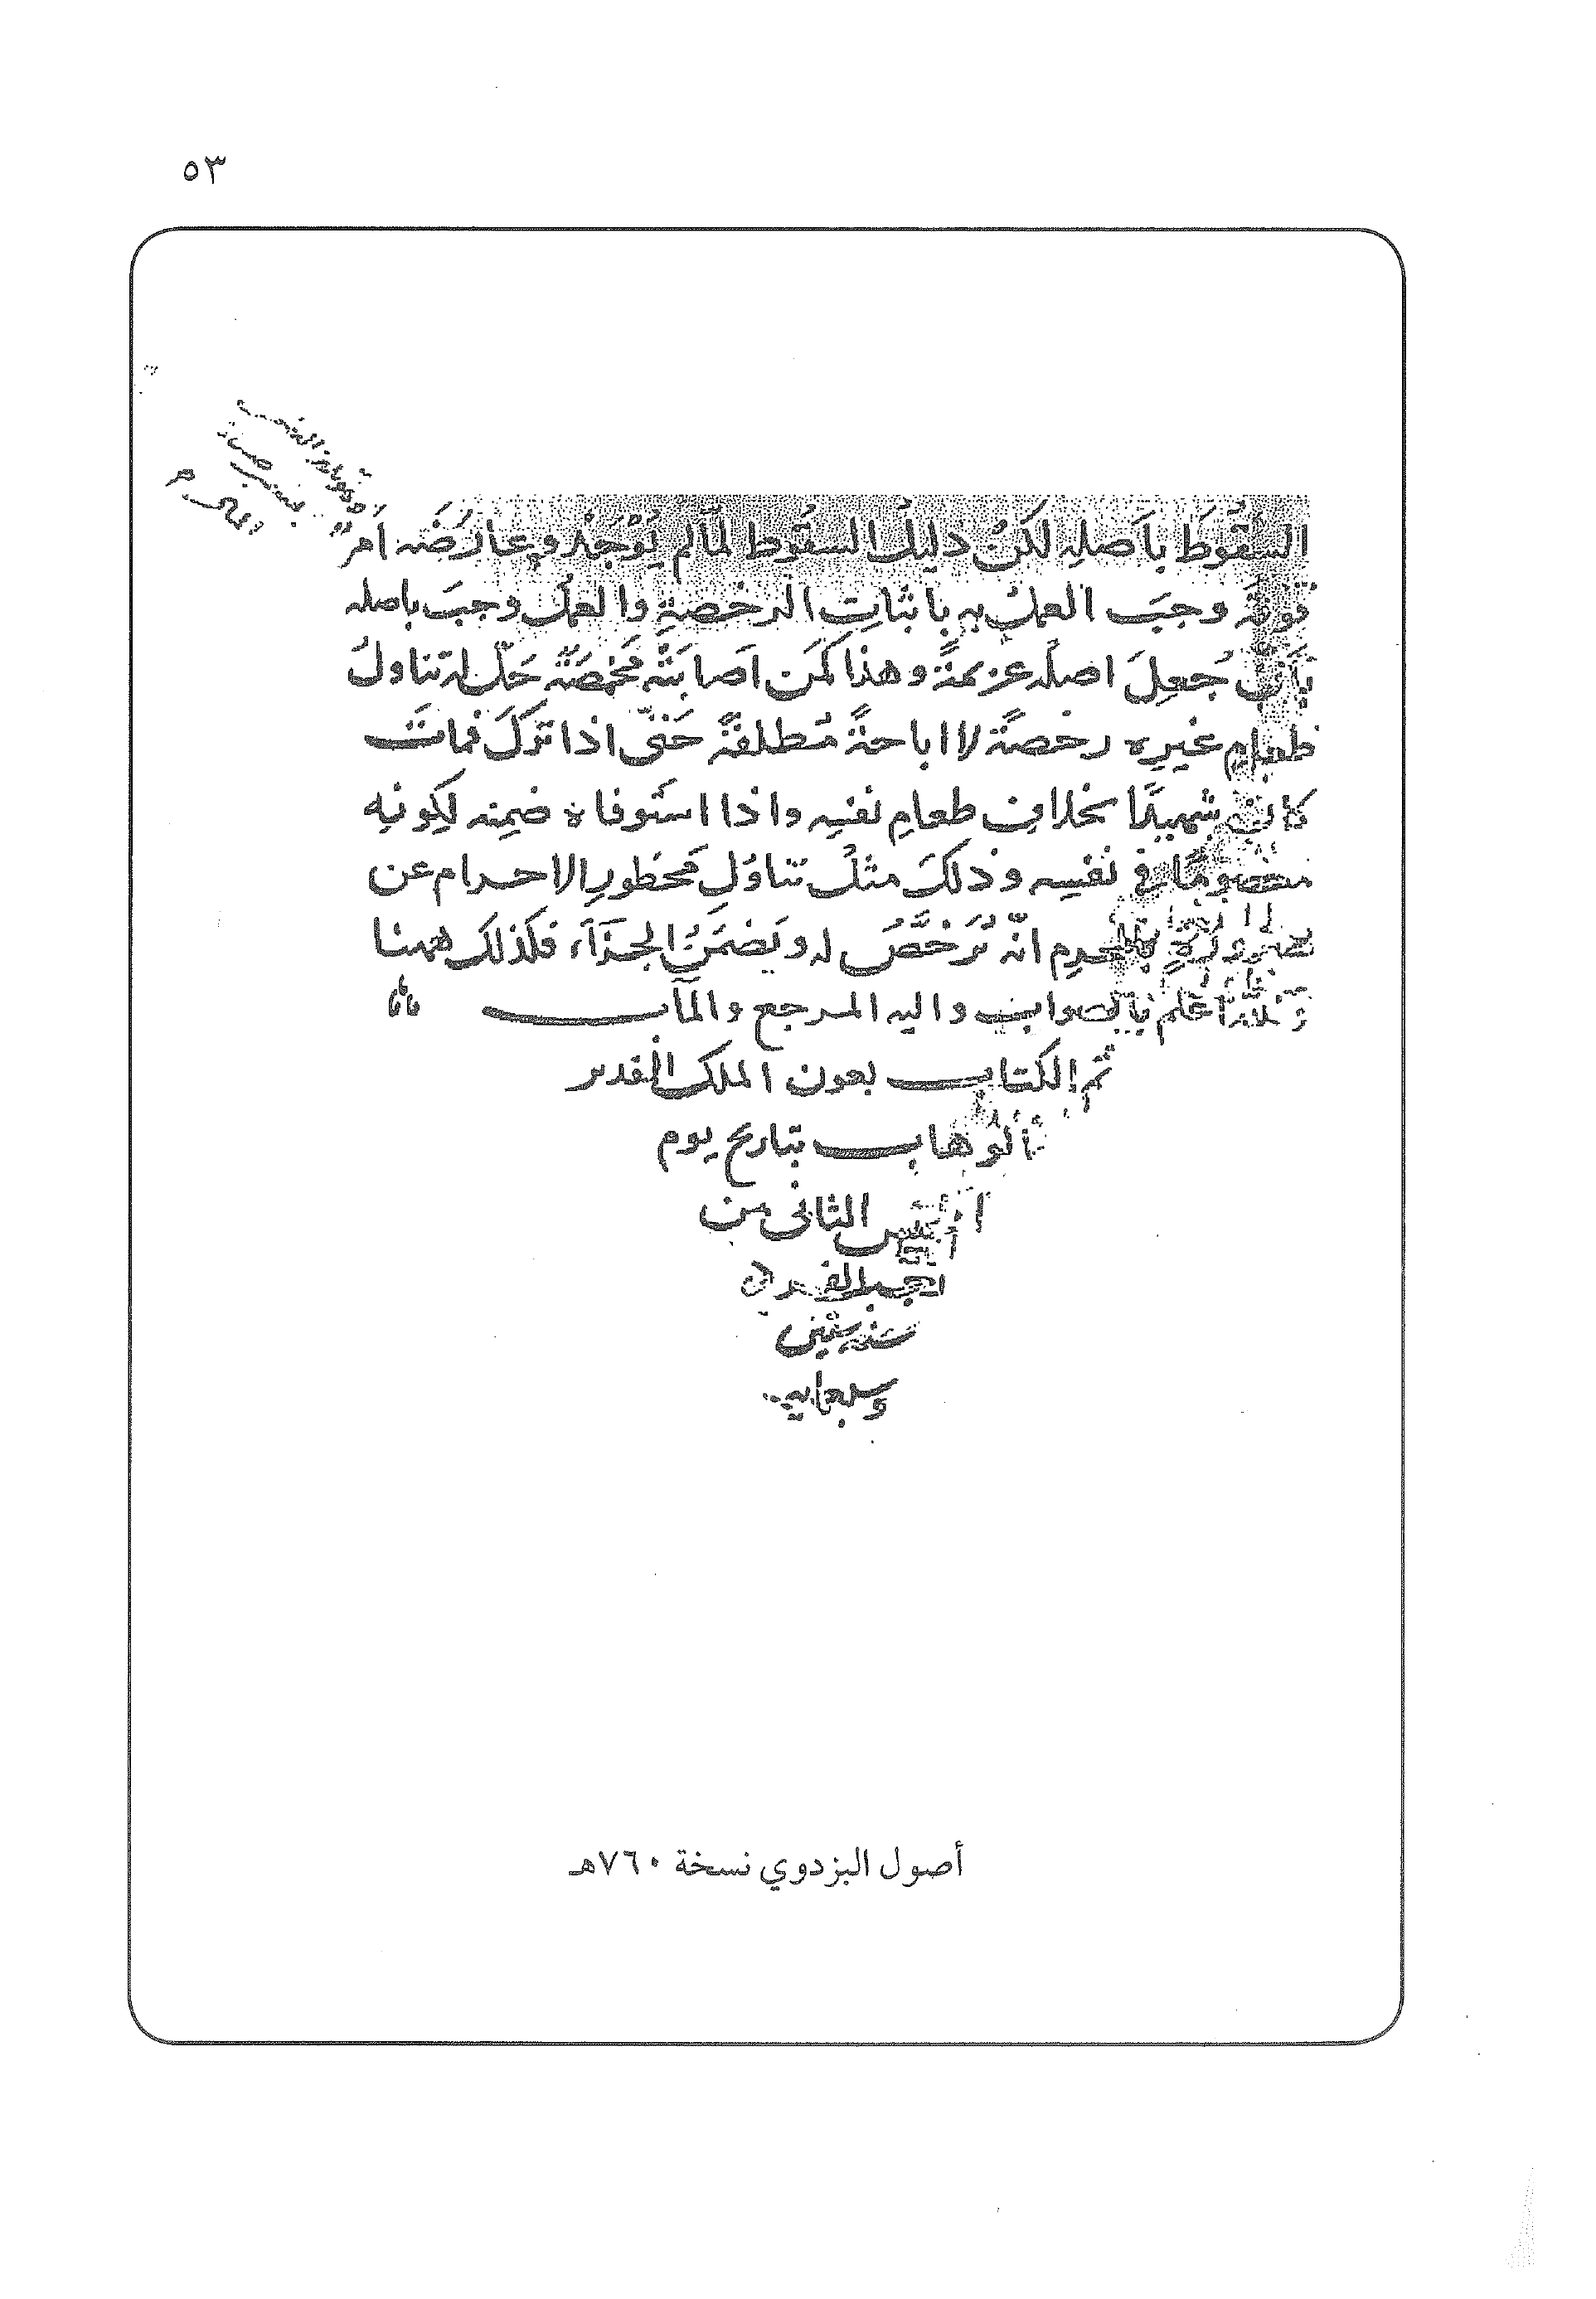 ٥٣
السقُوطَ بأصلِه لكنّ دليلُ السقُوط لمّا لم يُوْجَدْ وعارَضَه أمرٌ
فوقَه وجبَ العملُ به باثباتِ الرخصةِ والعملُ وجبَ باصله
بأن جُعِلَ اصلُه عزيمةً وهذا كمَن اَصابَتْه مَخْمَصَةٌ حَلَّ له تناولُ
طعامِ غيرِه رخصَةً لا اباحةً مُطلقةً حَتّى اذا تَركَ فماتَ
كان شهيدًا بخلافِ طعامِ نفسِه واذا استَوفاه ضمِنه لكونِه
معصومًا في نفسِه وذلكَ مثلُ تناوُلِ مَحظورِ الاحرام عن
ضرورةٍ بالمحرِم انّه يُرَخَّصُ له ويَضمَنُ الجزآءَ فكذلك ههنا
والله اَعْلم بالصواب واليه المرجع والمآب
تم الكتاب بعون الملك القدير
الوهاب بتاريخ يوم
الخميس الثانى من
سنه ستين
وسبعمايه
أصول البزدوي نسخة ٧٦٠هـ